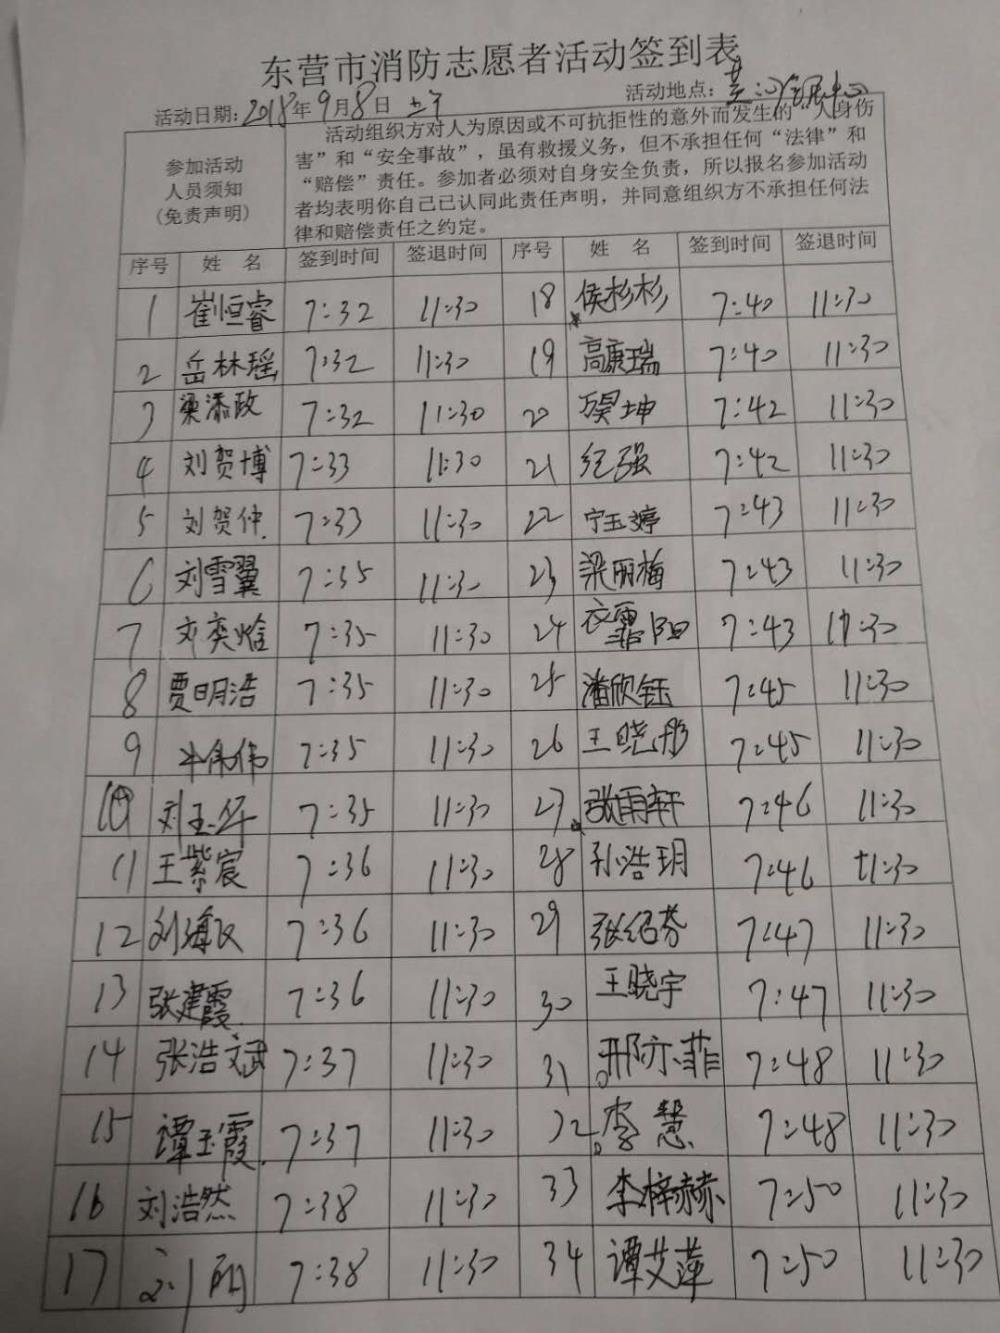 东营市消防志愿者活动签到表
活动日期: 2018年9月8日 上午 活动地点:
参加活动
人员须知
(免责声明)
活动组织方对人为原因或不可抗拒性的意外而发生的“人身伤
害”和“安全事故”，虽有救援义务，但不承担任何“法律”和
“赔偿”责任。参加者必须对自身安全负责，所以报名参加活动
者均表明你自己已认同此责任声明，并同意组织方不承担任何法
律和赔偿责任之约定。
序号 姓 名 签到时间 签退时间 序号 姓 名 签到时间 签退时间
1 崔恒睿 7:32 11:30 18 侯杉杉 7:40 11:30
2 岳林瑶 7:32 11:30 19 高康瑞 7:40 11:30
3 梁添政 7:32 11:30 20 万昊坤 7:42 11:30
4 刘贺博 7:33 11:30 21 纪强 7:42 11:30
5 刘贺仲 7:33 11:30 22 宁玉婷 7:43 11:30
6 刘雪翼 7:35 11:30 23 梁丽梅 7:43 11:30
7 刘奕焓 7:35 11:30 24 衣霏阳 7:43 11:30
8 贾明浩 7:35 11:30 25 潘欣钰 7:45 11:30
9 7:35 11:30 26 王晓彤 7:45 11:30
10 刘玉华 7:35 11:30 27 张雨轩 7:46 11:30
11 王紫宸 7:36 11:30 28 孙浩玥 7:46 11:30
12 刘海 7:36 11:30 29 张绍芬 7:47 11:30
13 张建霞 7:36 11:30 30 王晓宇 7:47 11:30
14 张浩斌 7:37 11:30 31 邢亦菲 7:48 11:30
15 谭玉霞 7:37 11:30 32 李慧 7:48 11:30
16 刘浩然 7:38 11:30 33 李梓赫 7:50 11:30
17 7:38 11:30 34 谭艾萍 7:50 11:30